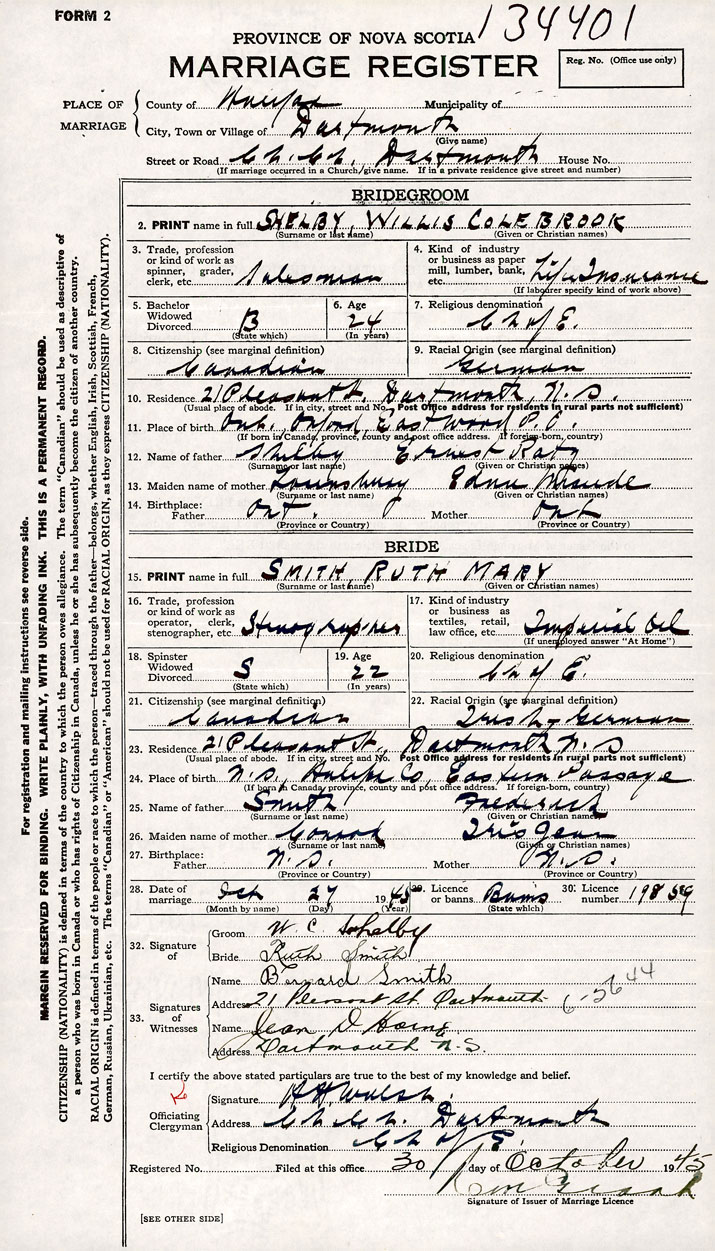 FORM 2
134401
PROVINCE OF NOVA SCOTIA
MARRIAGE REGISTER
Reg. No. (Office use only)
PLACE OF MARRIAGE
County of Halifax Municipality of
City, Town or Village of Dartmouth
(Give name)
Street or Road Ch. Ch. Dartmouth House No.
(If marriage occurred in a Church/give name. If in a private residence give street and number)
BRIDEGROOM
2. PRINT name in full SHELBY, WILLIS COLEBROOK
(Surname or last name) (Given or Christian names)
3. Trade, profession or kind of work as spinner, grader, clerk, etc. Salesman
4. Kind of industry or business as paper mill, lumber, bank, etc. Life Insurance
(If labourer specify kind of work above)
5. Bachelor Widowed Divorced B
(State which)
6. Age 24
(In years)
7. Religious denomination Ch of E.
8. Citizenship (see marginal definition) Canadian
9. Racial Origin (see marginal definition) German
10. Residence 21 Pleasant St. Dartmouth, N.S.
(Usual place of abode. If in city, street and No. Post Office address for residents in rural parts not sufficient)
11. Place of birth Ont. Oxford, Eastwood P.O.
(If born in Canada, province, county and post office address. If foreign-born, country)
12. Name of father Shelby Ernest
(Surname or last name) (Given or Christian names)
13. Maiden name of mother Edna
(Surname or last name) (Given or Christian names)
14. Birthplace: Father Ont. Mother Ont
(Province or Country) (Province or Country)
BRIDE
15. PRINT name in full SMITH, RUTH MARY
(Surname or last name) (Given or Christian names)
16. Trade, profession or kind of work as operator, clerk, stenographer, etc. Stenographer
17. Kind of industry or business as textiles, retail, law office, etc. Imperial Oil
(If unemployed answer "At Home")
18. Spinster Widowed Divorced S
(State which)
19. Age 22
(In years)
20. Religious denomination Ch of E.
21. Citizenship (see marginal definition) Canadian
22. Racial Origin (see marginal definition) Irish-German
23. Residence 21 Pleasant St., Dartmouth N.S
(Usual place of abode. If in city, street and No. Post Office address for residents in rural parts not sufficient)
24. Place of birth N.S. Halifax Co, Eastern Passage
(If born in Canada, province, county and post office address. If foreign-born, country)
25. Name of father Smith Frederick
(Surname or last name) (Given or Christian names)
26. Maiden name of mother Conrod Iris Jean
(Surname or last name) (Given or Christian names)
27. Birthplace: Father N.S. Mother N.S.
(Province or Country) (Province or Country)
28. Date of marriage Oct 27 1945
(Month by name) (Day) (Year)
29. Licence or banns. Banns
(State which)
30. Licence number 198599
32. Signature of
Groom W. C. Shelby
Bride Ruth Smith
33. Signatures of Witnesses
Name Bernard Smith
Address 21 Pleasant St. Dartmouth
Name Jean D
Address Dartmouth N.S.
I certify the above stated particulars are true to the best of my knowledge and belief.
Officiating Clergyman
Signature Walsh.
Address Ch. Ch. Dartmouth
Religious Denomination Ch of E.
Registered No. Filed at this office 30 day of October 1945
Signature of Issuer of Marriage Licence
[SEE OTHER SIDE]
For registration and mailing instructions see reverse side.
MARGIN RESERVED FOR BINDING. WRITE PLAINLY, WITH UNFADING INK. THIS IS A PERMANENT RECORD.
CITIZENSHIP (NATIONALITY) is defined in terms of the country to which the person owes allegiance. The term "Canadian" should be used as descriptive of
a person who was born in Canada or who has rights of Citizenship in Canada, unless he or she has subsequently become the citizen of another country.
RACIAL ORIGIN is defined in terms of the people or race to which the person—traced through the father—belongs, whether English, Irish, Scottish, French,
German, Russian, Ukrainian, etc. The terms "Canadian" or "American" should not be used for RACIAL ORIGIN, as they express CITIZENSHIP (NATIONALITY).